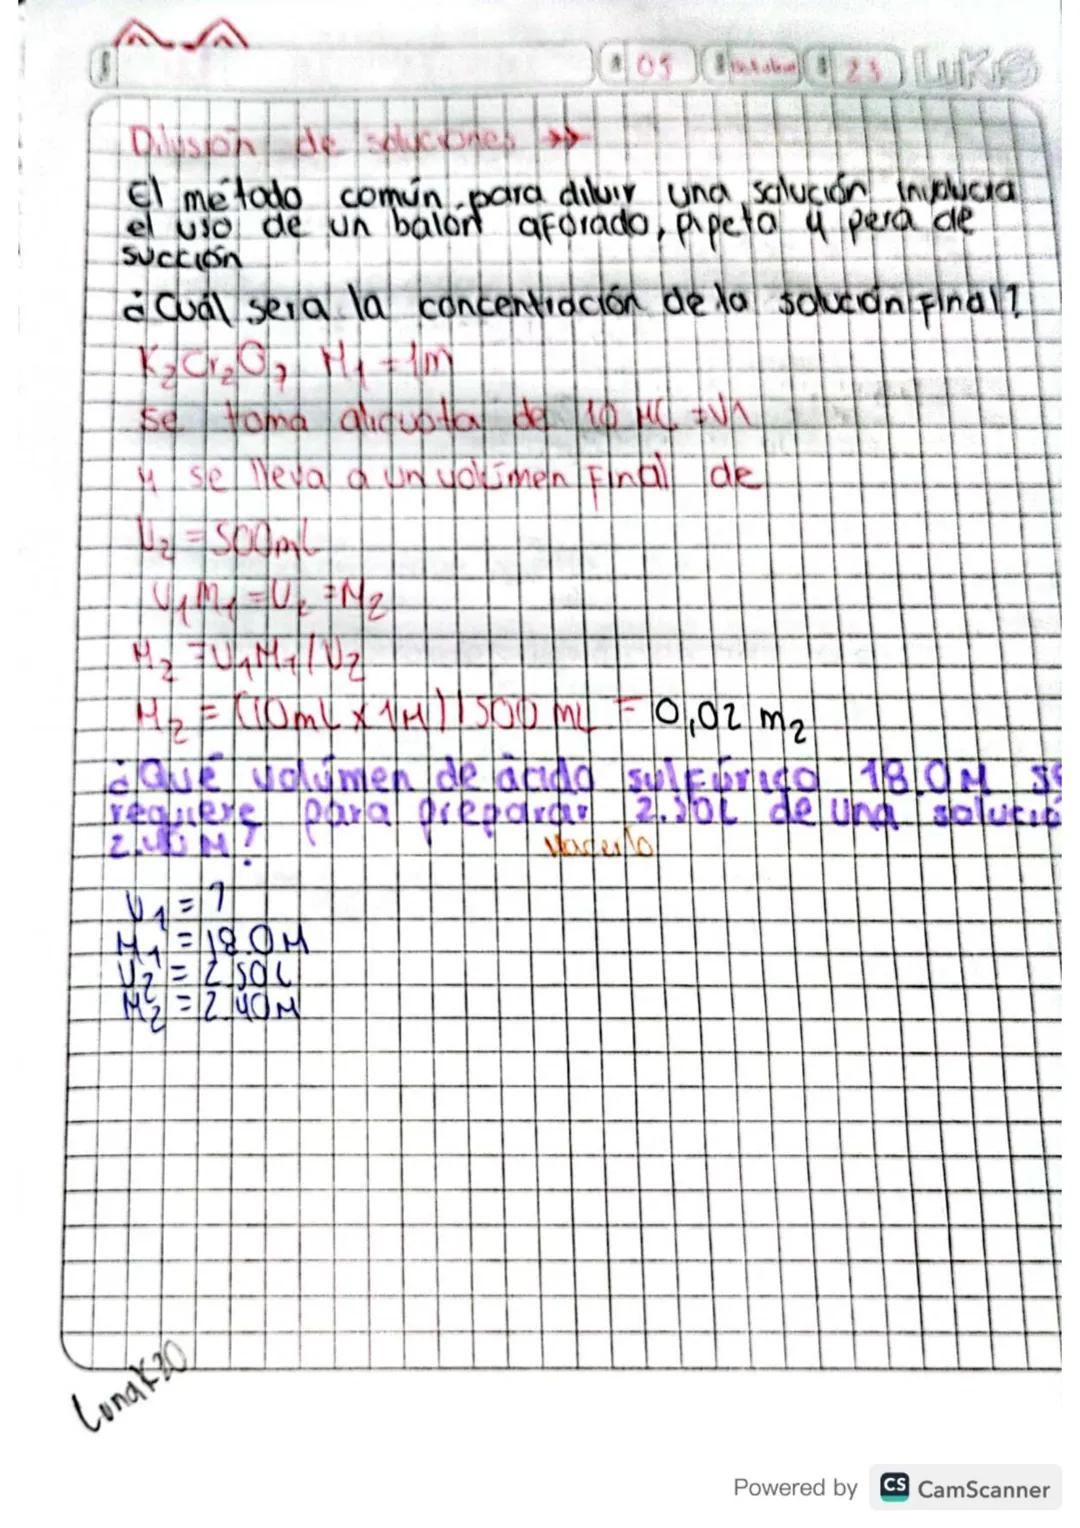 05 23 LUKS
Dilusión de soluciones →→
El método común para diluir una solución involucra
el uso de un balón aforado, pipeta y pera de
succión
¿Cuál sera la concentración de la solución final?
K₂Cr₂O₇ M₁ = 1m
se toma alicuota de 10 ML = V1
y se lleva a un volúmen Final de
V₂ = 500mL
V₁M₁ = V₂ = M₂
M₂ = V₁M₁ / V₂
M₂ = (10mL x 1M) / 500 mL = 0,02 m₂
¿Qué volúmen de ácido sulfúrico 18.0M se
requiere para preparar 2.50L de una solució
2.40 M? Hacerlo
V₁ = ?
M₁ = 18.0M
V₂ = 2.50L
M₂ = 2.40M
LunaK20
Powered by CS CamScanner